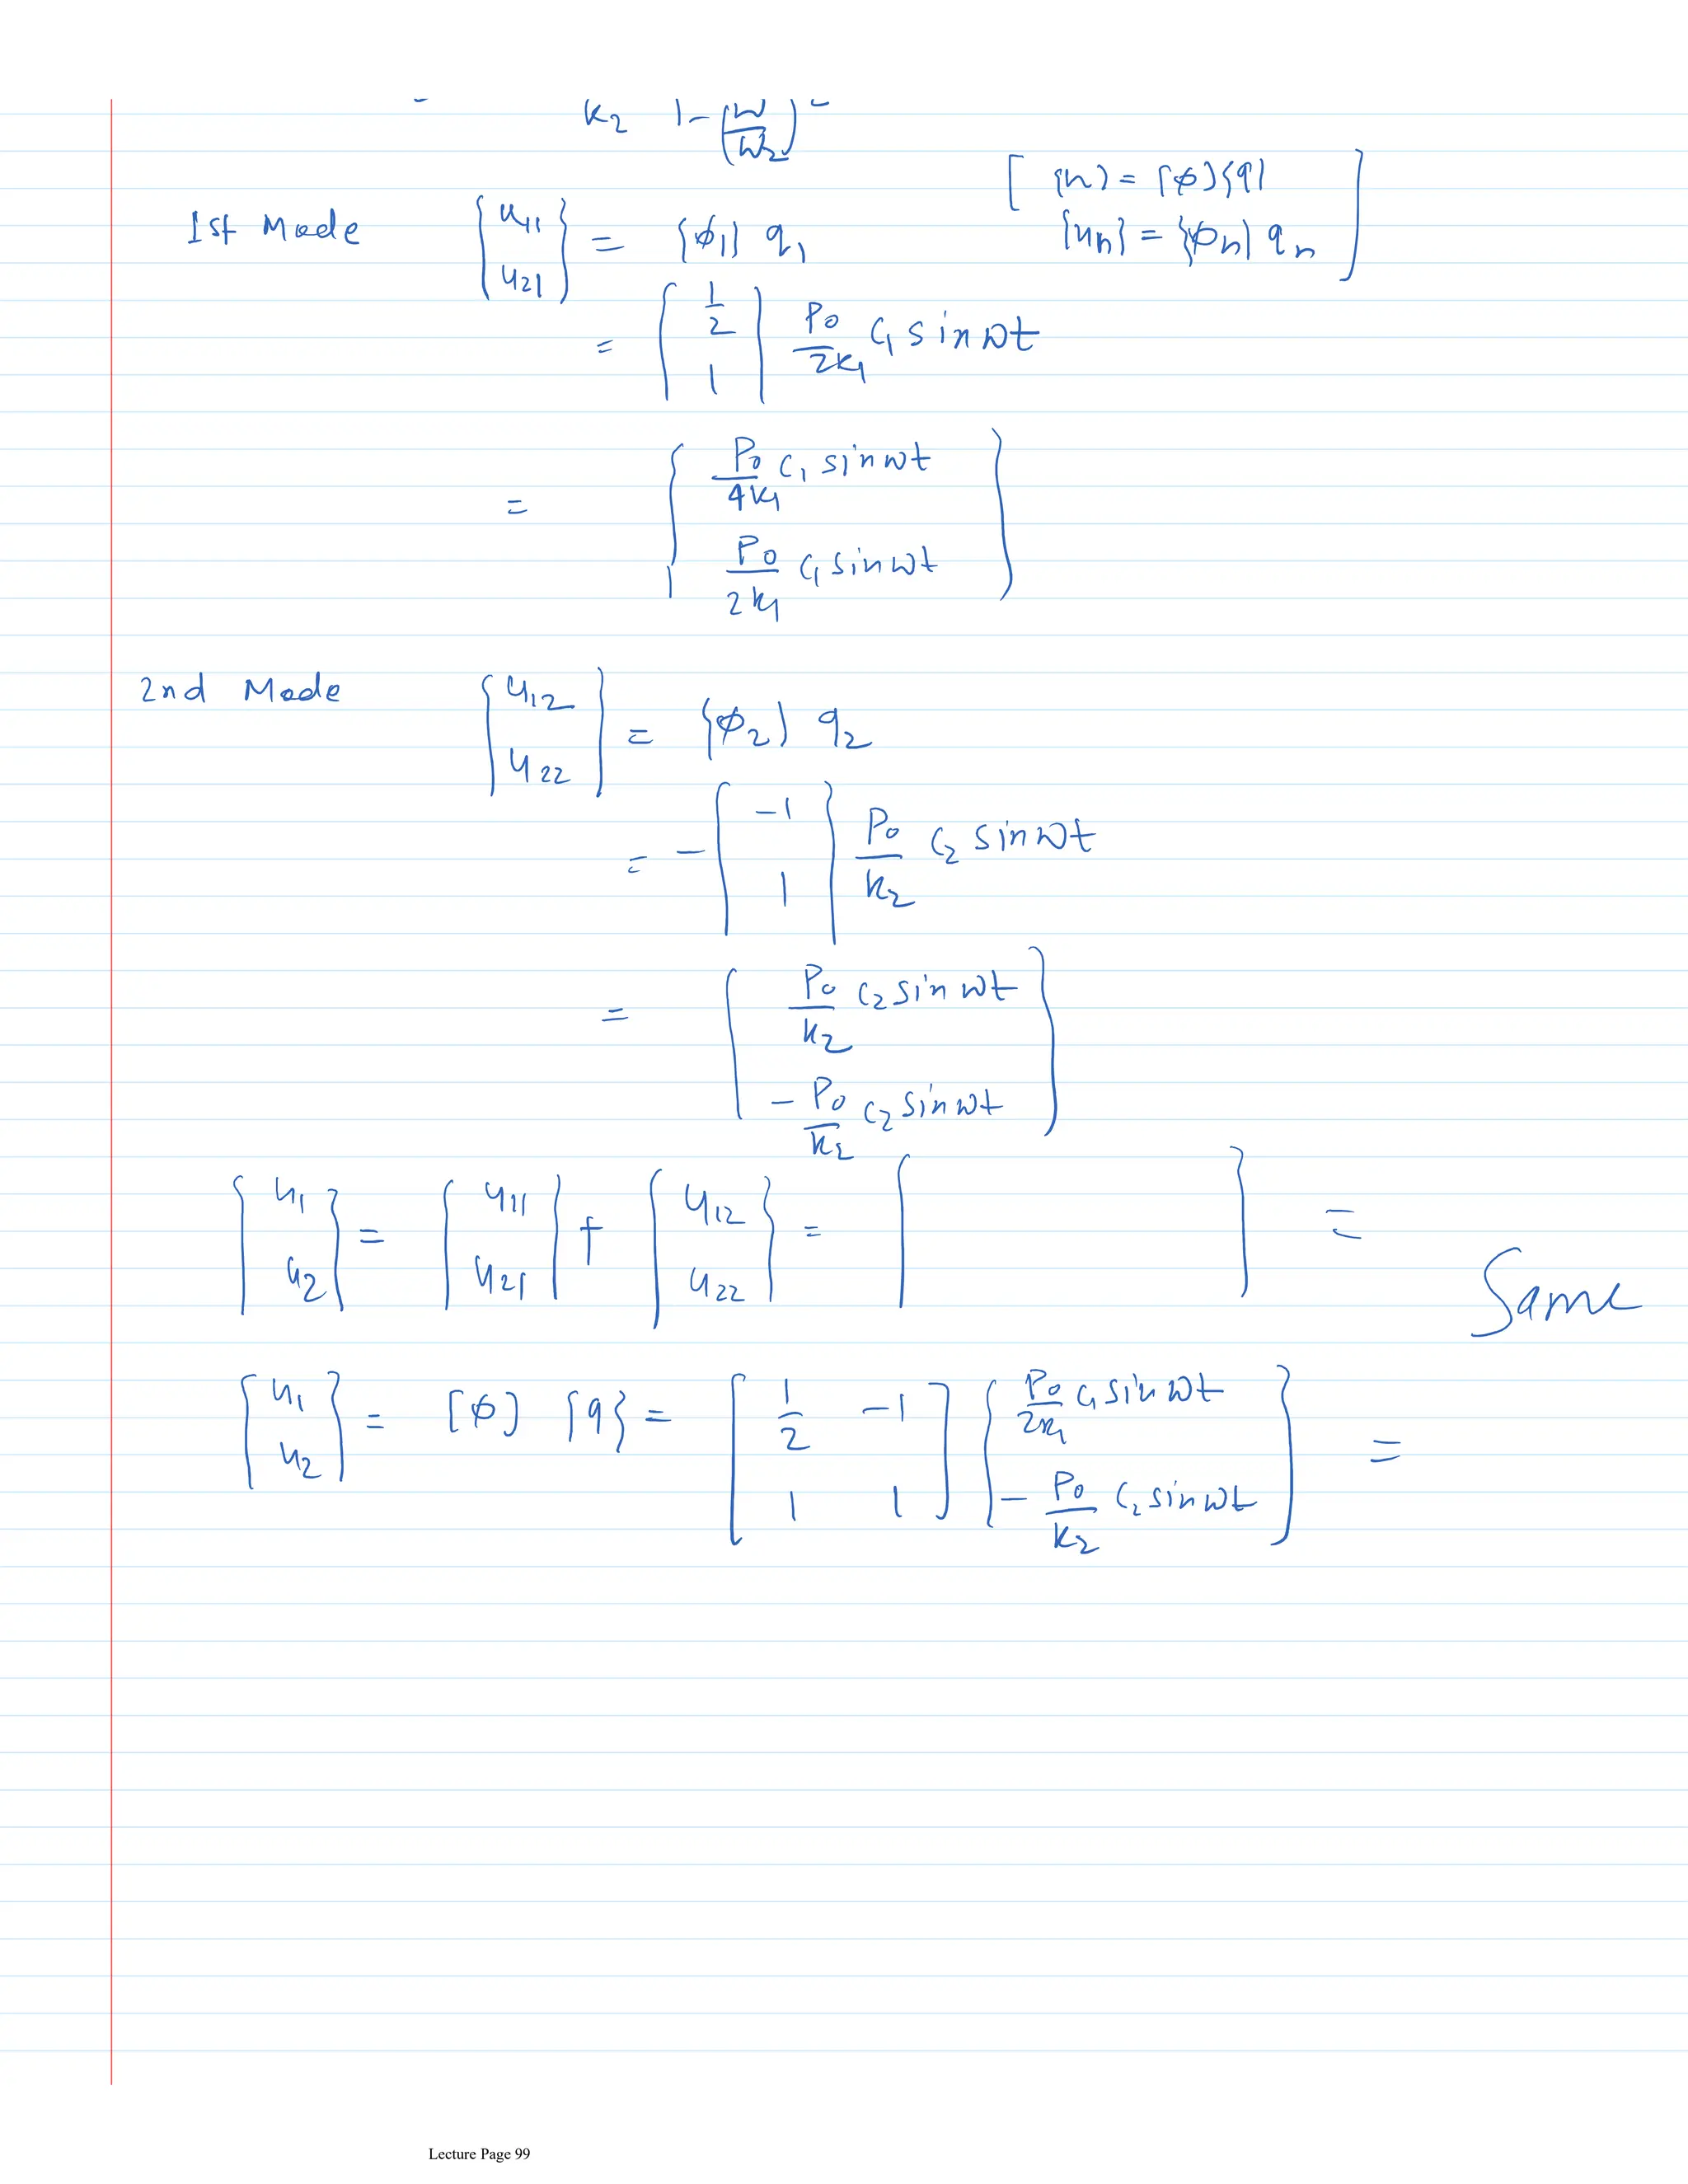 k₂ 1-(ω/ω₂)²
[ {u} = [φ]{q}
1st Mode {u₁₁ u₂₁} = {φ₁} q₁ {uₙ} = {φₙ} qₙ ]
= {1/2 1} P₀/2k₁ C₁ sin ωt
= {P₀/4k₁ C₁ sin ωt
P₀/2k₁ C₁ sin ωt}
2nd Mode {u₁₂ u₂₂} = {φ₂} q₂
= - {-1 1} P₀/k₂ C₂ sin ωt
= {P₀/k₂ C₂ sin ωt
- P₀/k₂ C₂ sin ωt}
{u₁ u₂} = {u₁₁ u₂₁} + {u₁₂ u₂₂} = { } =
Same
{u₁ u₂} = [φ] {q} = [1/2 -1 1 1] {P₀/2k₁ C₁ sin ωt - P₀/k₂ C₂ sin ωt} =
Lecture Page 99